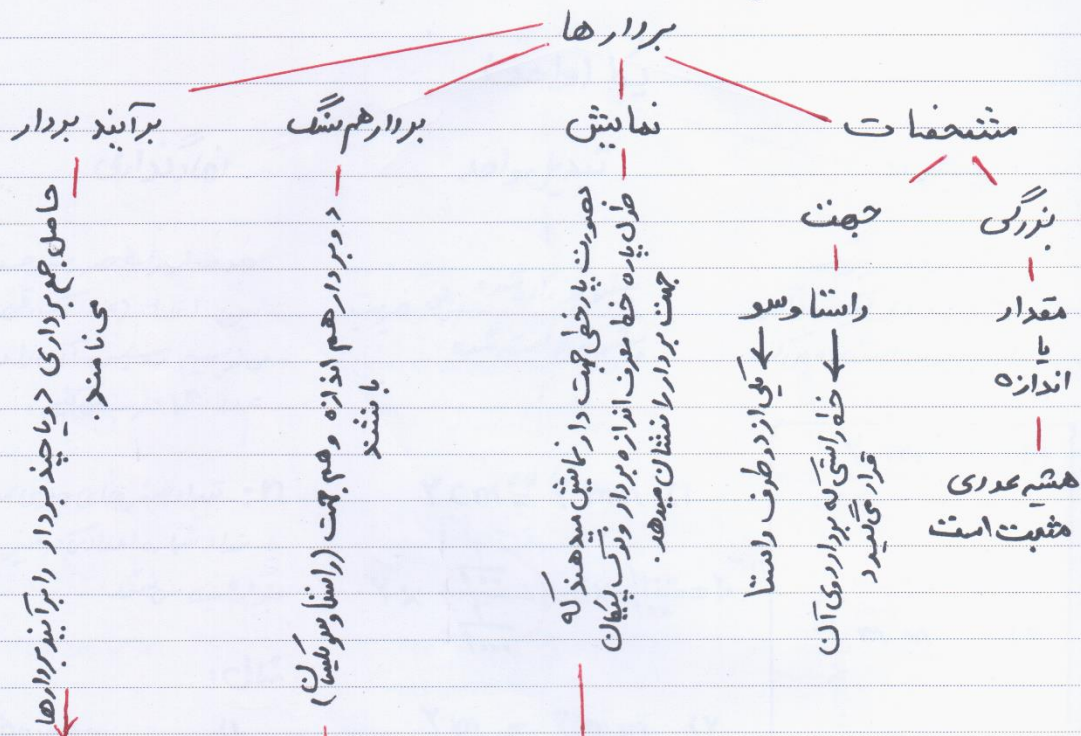 بردارها
مشخصات
نمایش
بردار هم سنگ
برآیند بردار
بزرگی
جهت
مقدار
یا
اندازه
همیشه عددی
مثبت است
راستا و سو
خط راستی که بردار روی آن
قرار می‌گیرد
یکی از دو طرف راستا
بصورت پاره خطی جهت دار نمایش میدهند که
طول پاره خط معرف اندازه بردار و نوک پیکان
جهت بردار را نشان میدهد.
دو بردار هم اندازه و هم جهت (راستا و سو یکسان)
باشند
حاصل جمع برداری دو یا چند بردار را برآیند بردارها
می نامند.